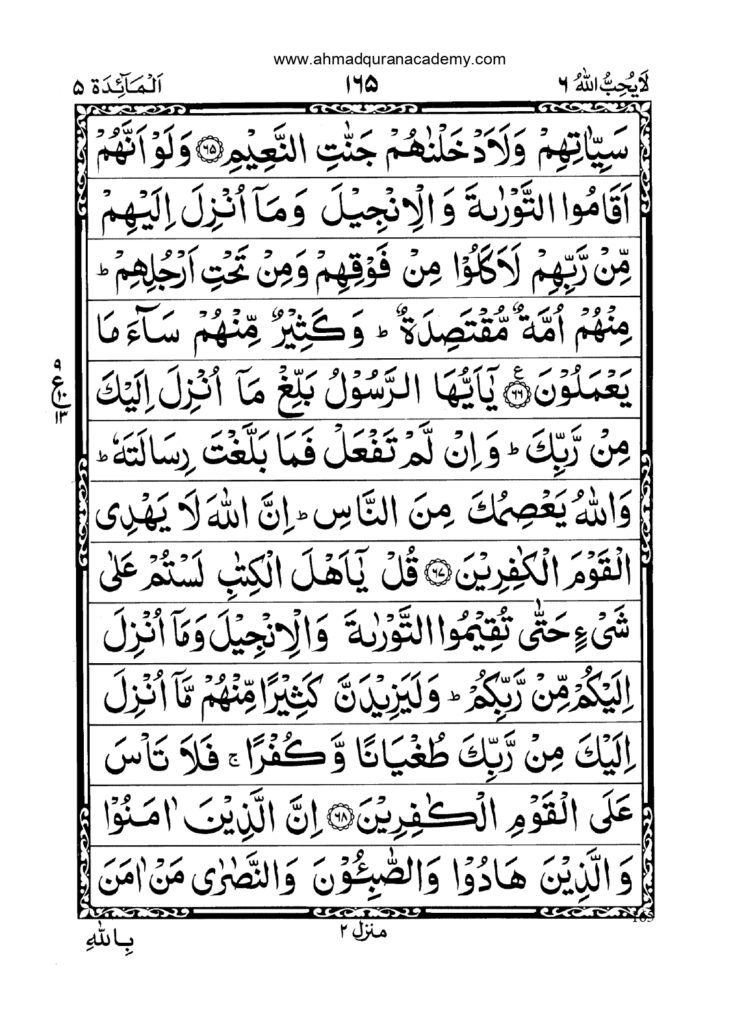 www.ahmadquranacademy.com
لَايُحِبُّ اللهُ ٦ ١٦٥ اَلْمَآئِدَة ٥
سَيِّاٰتِهِمْ وَلَاَدْخَلْنٰهُمْ جَنّٰتِ النَّعِيْمِ ۝٦٥ وَلَوْ اَنَّهُمْ
اَقَامُوا التَّوْرٰىةَ وَالْاِنْجِيْلَ وَمَآ اُنْزِلَ اِلَيْهِمْ
مِّنْ رَّبِّهِمْ لَاَكَلُوْا مِنْ فَوْقِهِمْ وَمِنْ تَحْتِ اَرْجُلِهِمْ ؕ
مِنْهُمْ اُمَّةٌ مُّقْتَصِدَةٌ ؕ وَكَثِيْرٌ مِّنْهُمْ سَآءَ مَا
يَعْمَلُوْنَ ۝٦٦ ع يٰۤاَيُّهَا الرَّسُوْلُ بَلِّغْ مَآ اُنْزِلَ اِلَيْكَ
٩ ع ١٠ ١٣
مِنْ رَّبِّكَ ؕ وَاِنْ لَّمْ تَفْعَلْ فَمَا بَلَّغْتَ رِسَالَتَهٗ ؕ
وَاللهُ يَعْصِمُكَ مِنَ النَّاسِ ؕ اِنَّ اللهَ لَا يَهْدِى
الْقَوْمَ الْكٰفِرِيْنَ ۝٦٧ قُلْ يٰۤاَهْلَ الْكِتٰبِ لَسْتُمْ عَلٰى
شَىْءٍ حَتّٰى تُقِيْمُوا التَّوْرٰىةَ وَالْاِنْجِيْلَ وَمَآ اُنْزِلَ
اِلَيْكُمْ مِّنْ رَّبِّكُمْ ؕ وَلَيَزِيْدَنَّ كَثِيْرًا مِّنْهُمْ مَّآ اُنْزِلَ
اِلَيْكَ مِنْ رَّبِّكَ طُغْيَانًا وَّكُفْرًا ۚ فَلَا تَاْسَ
عَلَى الْقَوْمِ الْكٰفِرِيْنَ ۝٦٨ اِنَّ الَّذِيْنَ اٰمَنُوْا
وَالَّذِيْنَ هَادُوْا وَالصّٰبِـُٔوْنَ وَالنَّصٰرٰى مَنْ اٰمَنَ
165
منزل ٢
بِاللهِ